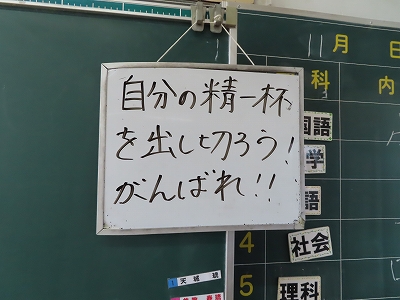 自分の精一杯
を出し切ろう!
がんばれ!!
11月 日
科 内
国語
学
語
4 社会
5 理科
1 天城